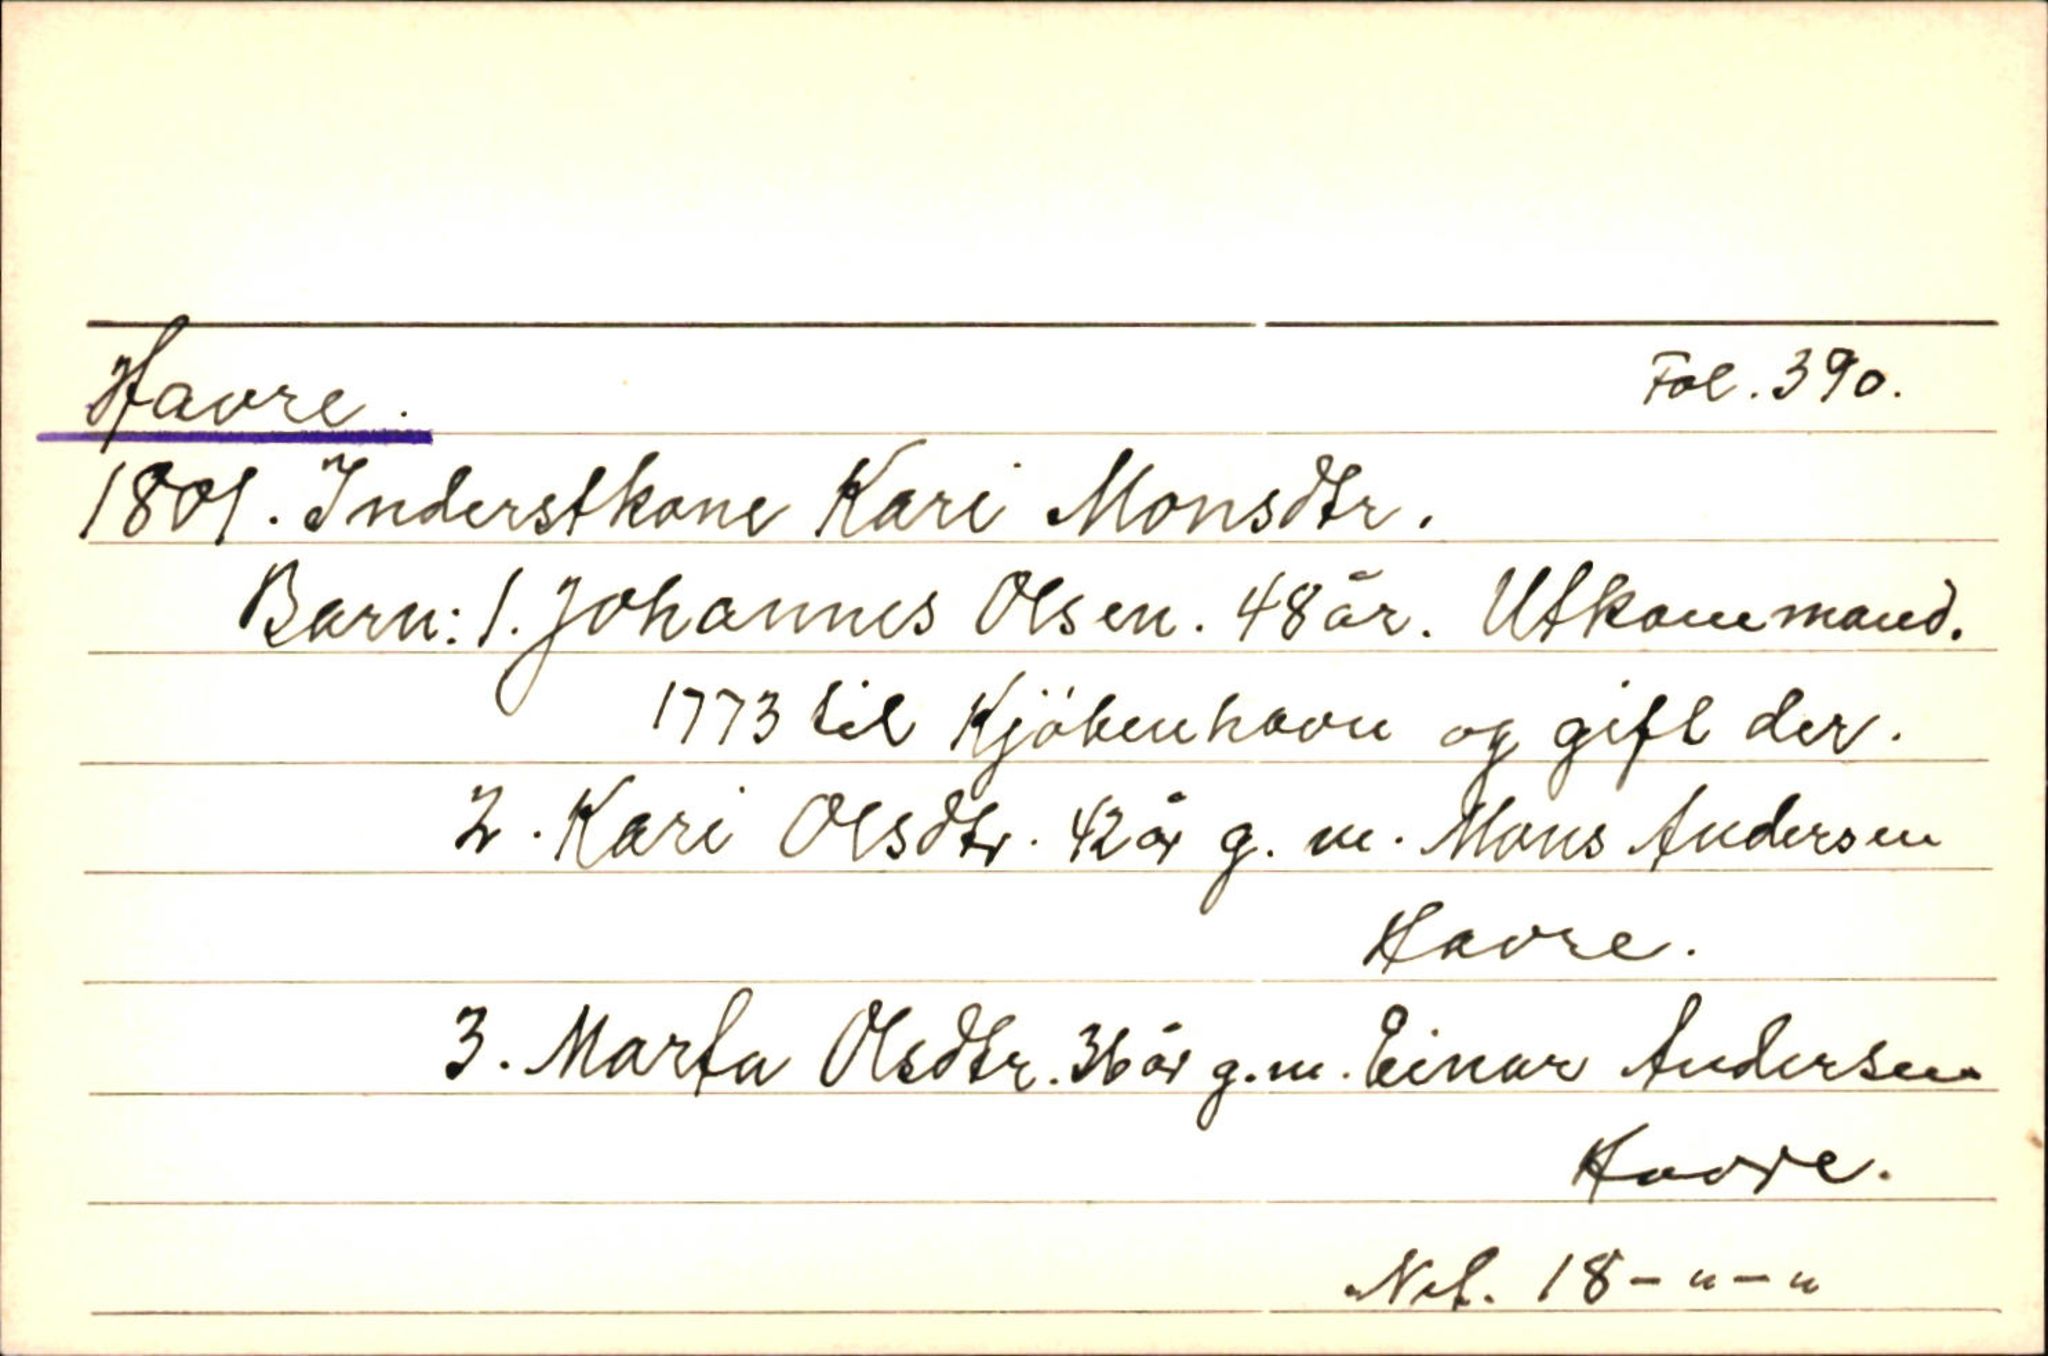 Havre. Fol. 390.
1801. Inderstkone Kari Monsdtr.
Barn: 1. Johannes Olsen. 48 år. Utkommand.
1773 til Kjöbenhavn og gift der.
2. Kari Olsdtr. 42 år g. m. Mons Andersen
Havre.
3. Marta Olsdtr. 36 år g. m. Einar Andersen
Havre.
Net. 18 - " - "